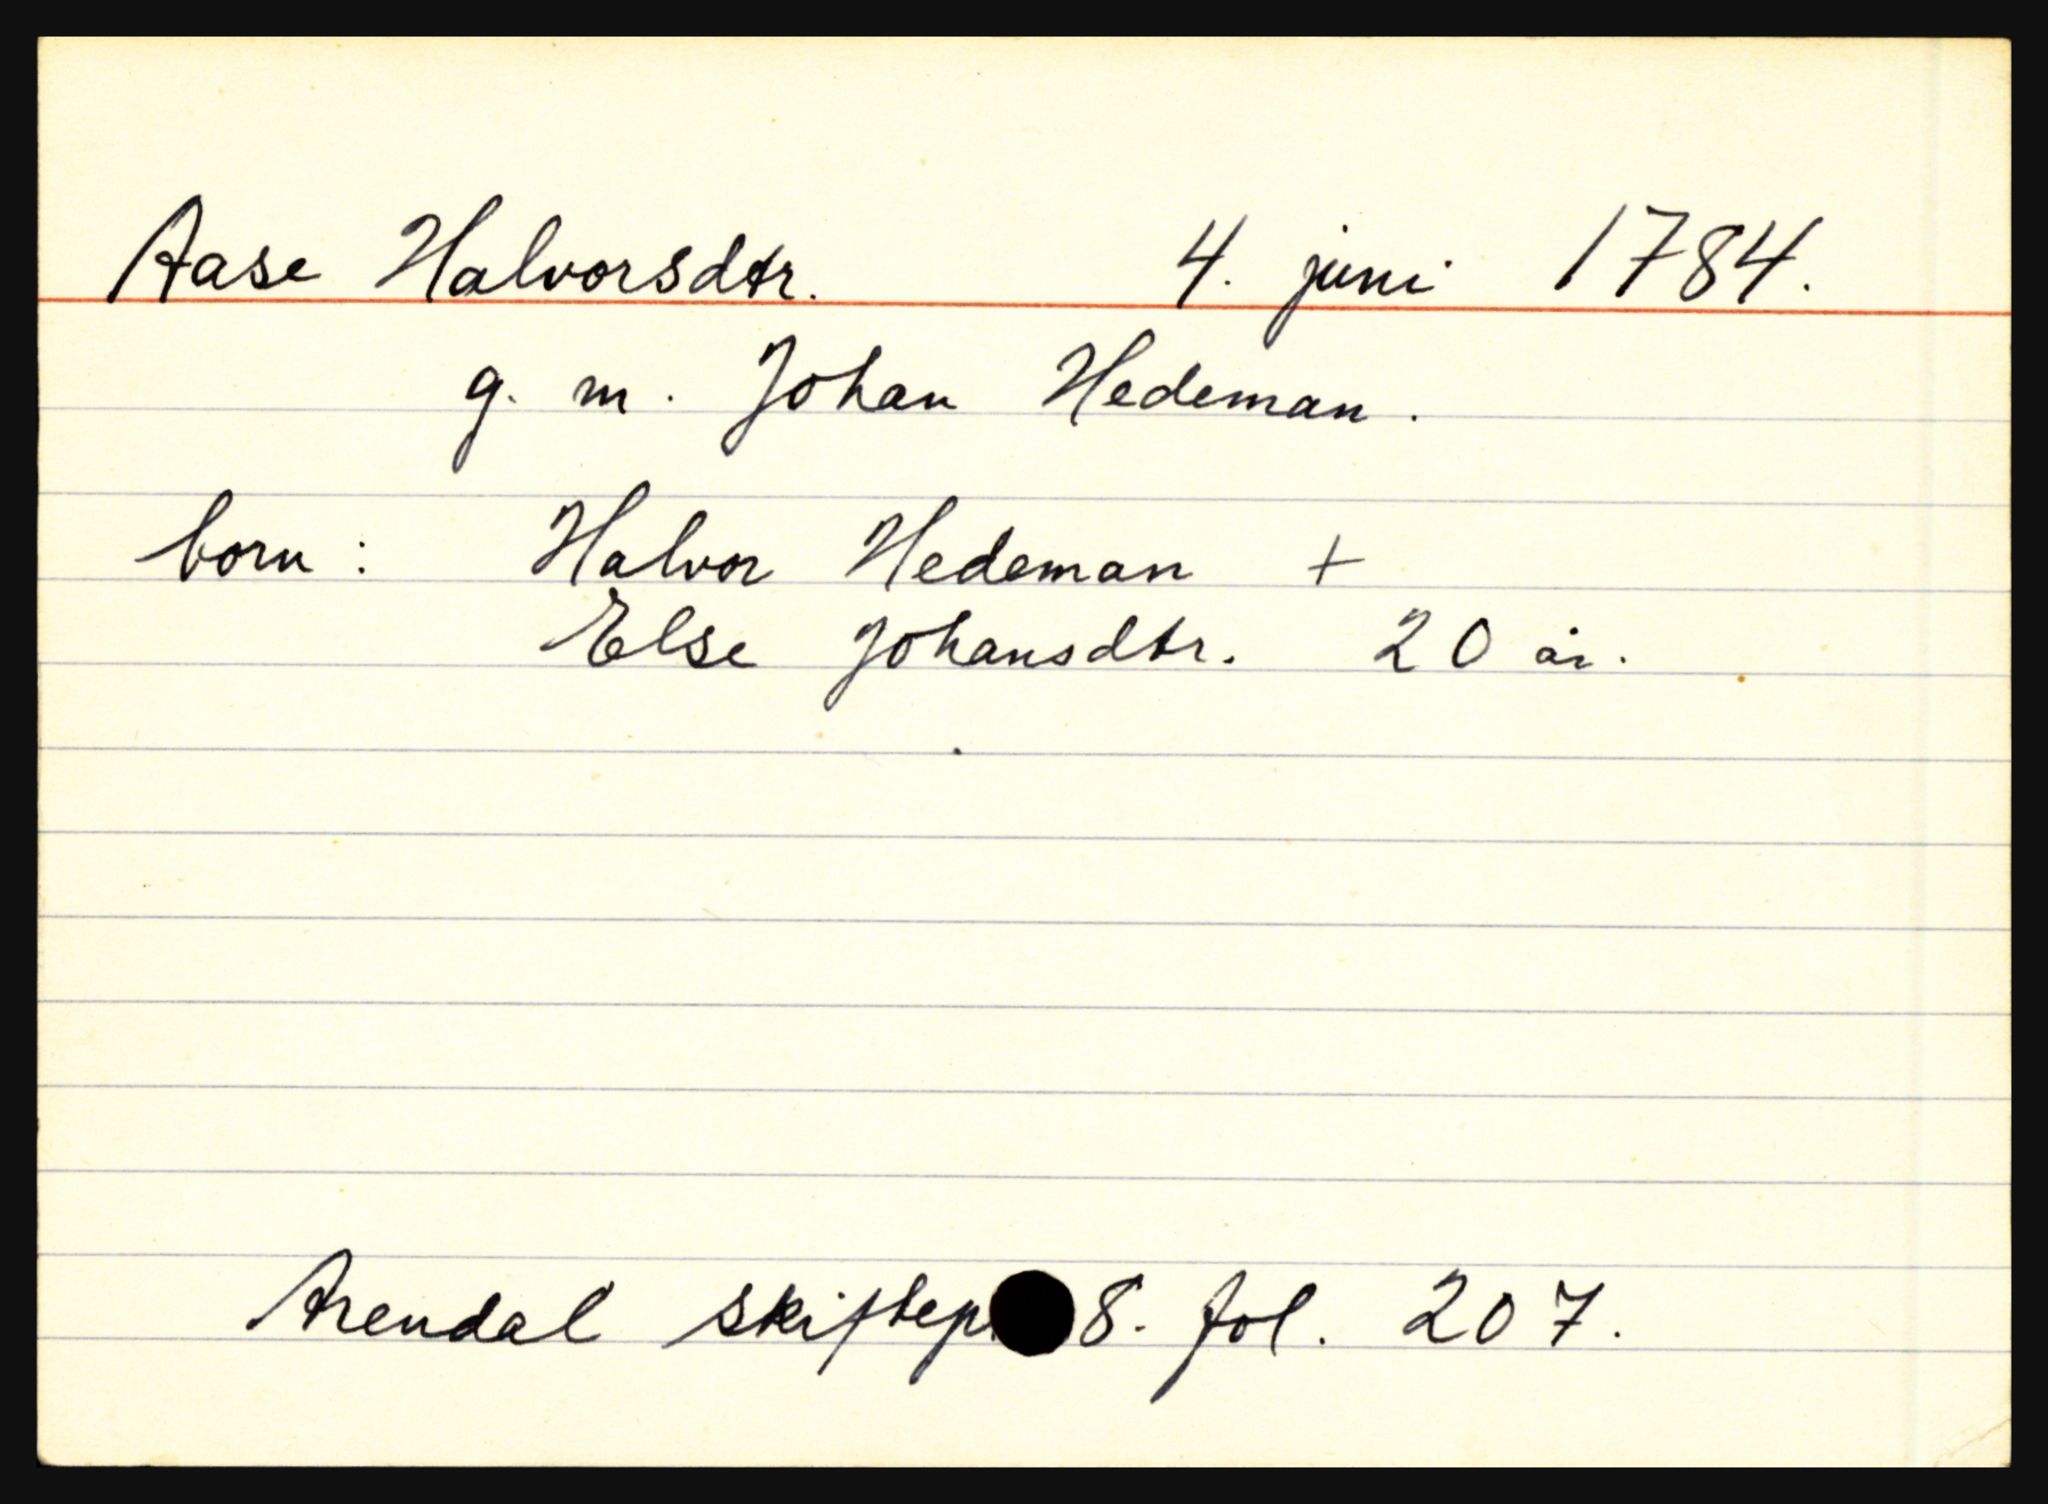 Aase Halvorsdtr. 4. juni 1784.
g. m. Johan Hedeman.
born: Halvor Hedeman +
Else Johansdtr. 20 år.
Arendal skiftep 8. fol. 207.